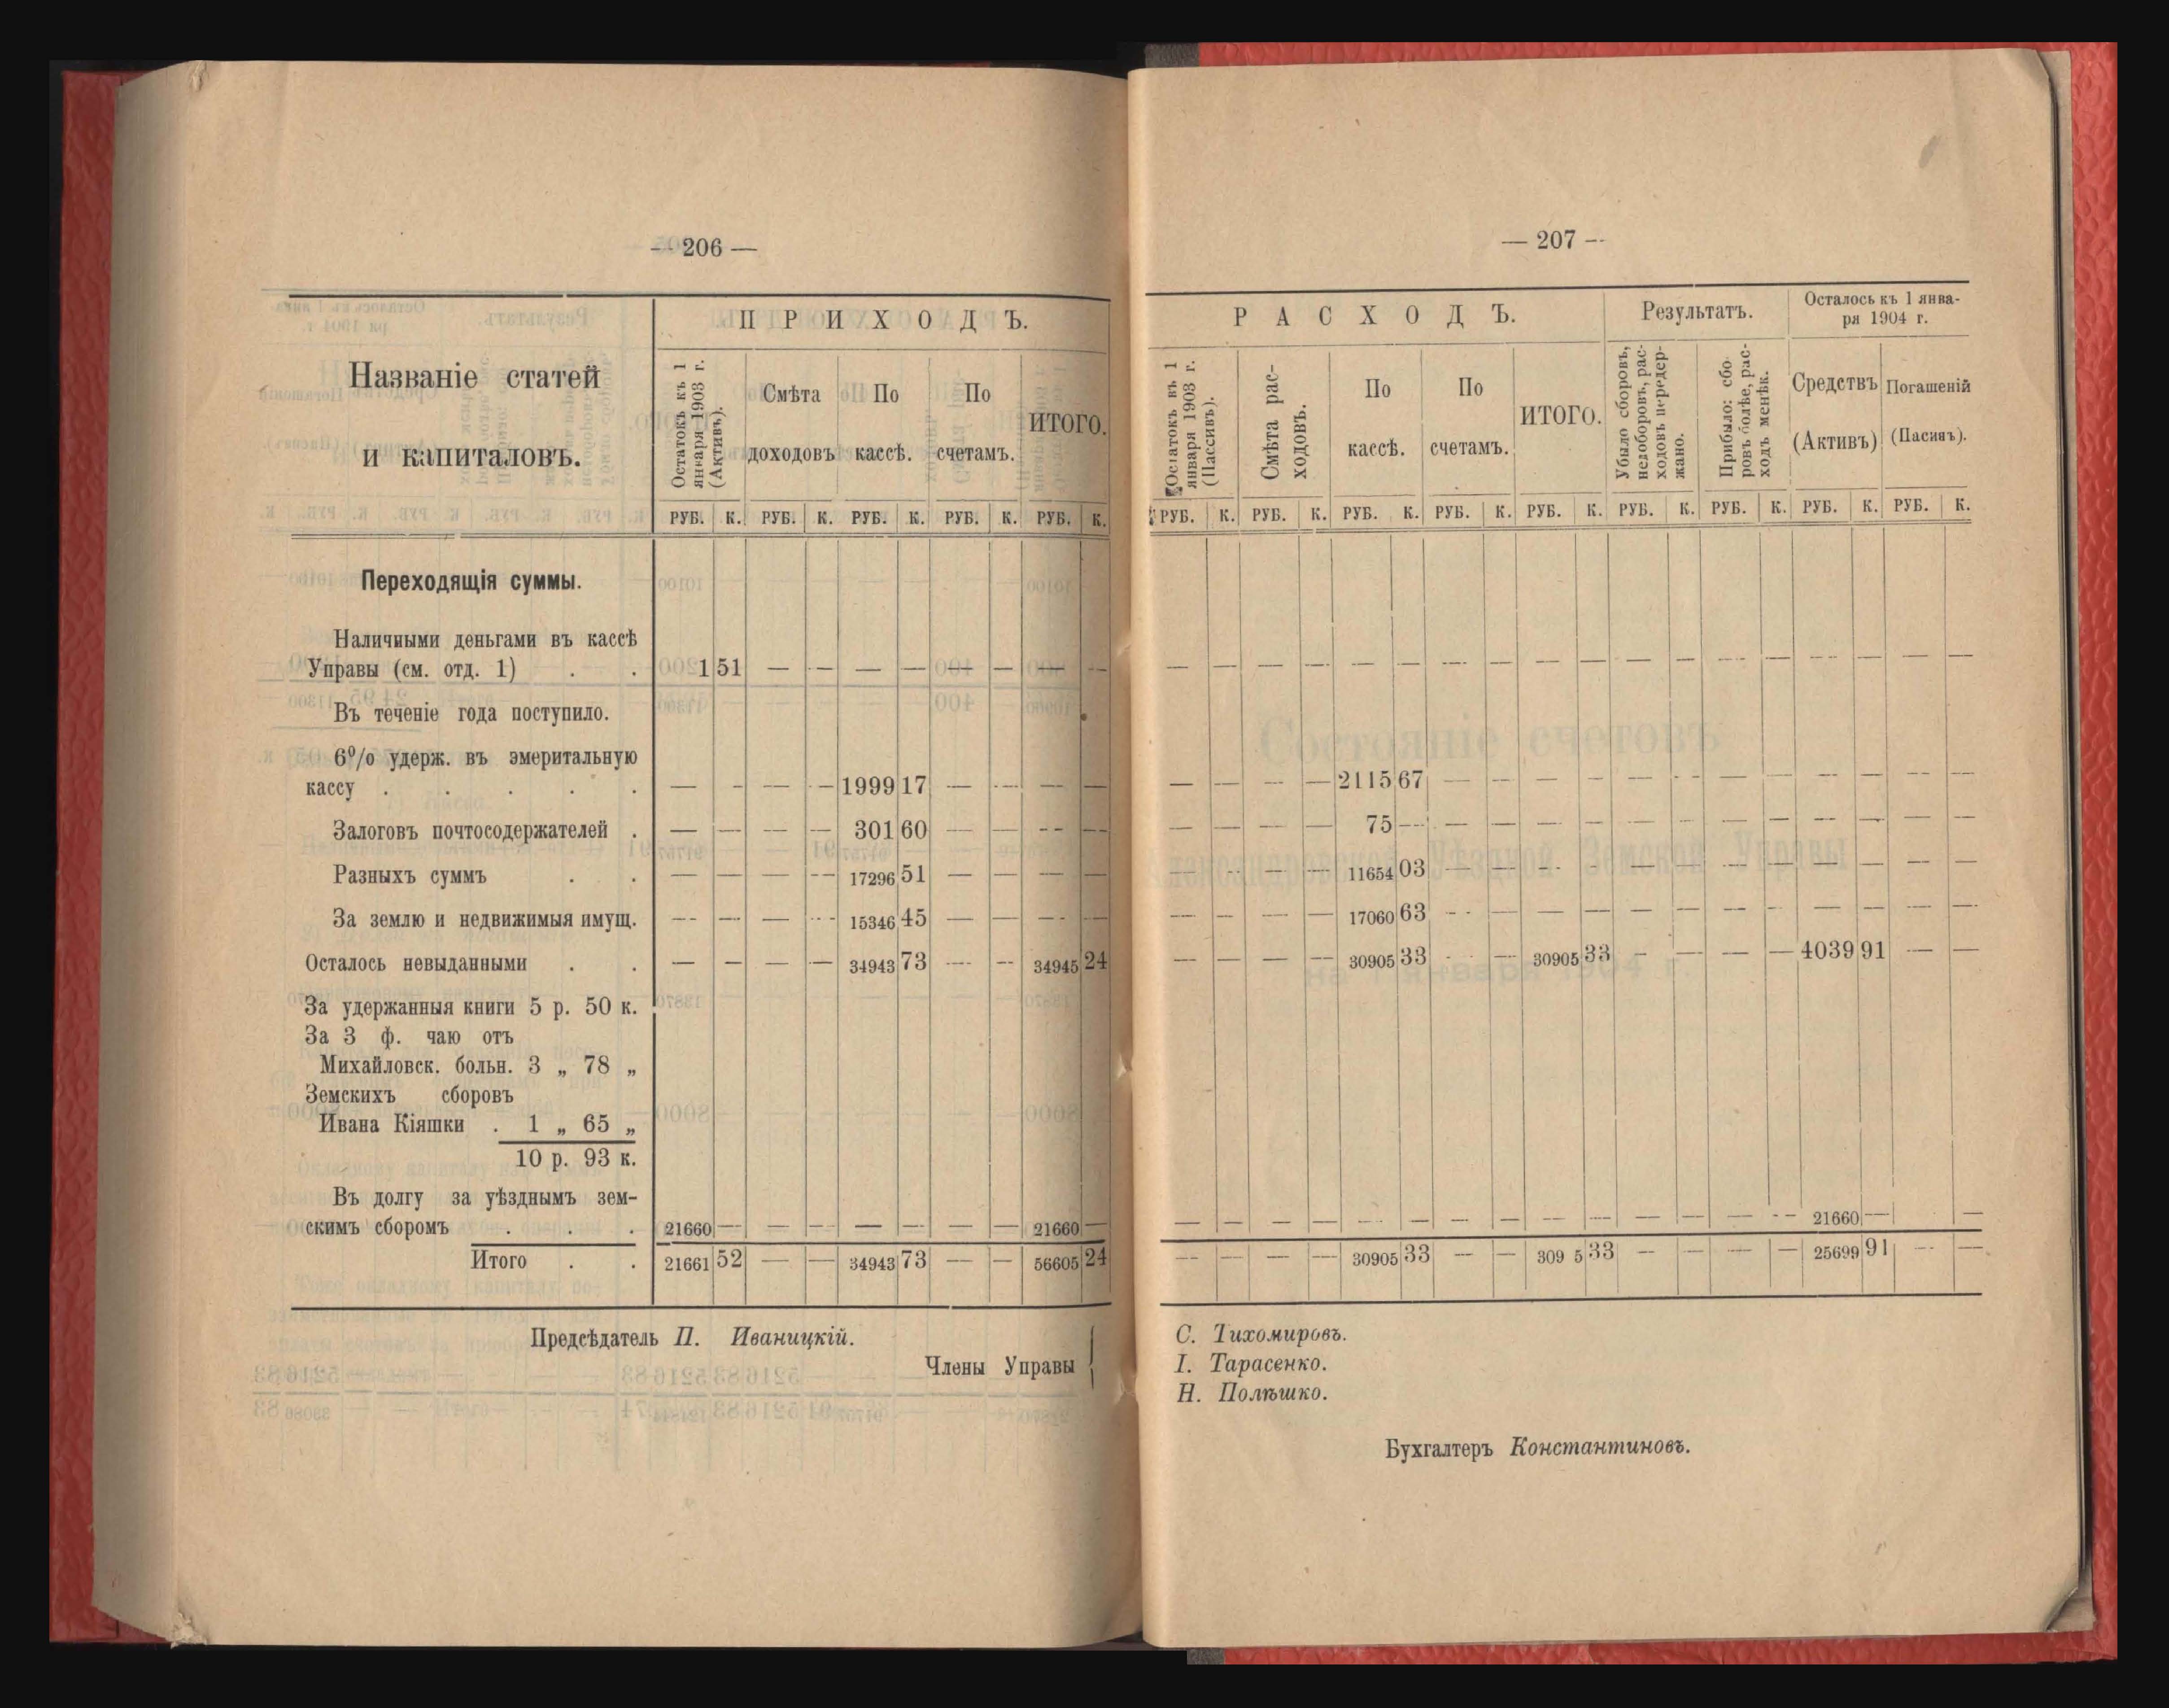 — 206 —
Названіе статей
и капиталовъ.
ПРИХОДЪ.
Остатокъ къ 1
января 1903 г.
(Активъ).
Смѣта
доходовъ
По
кассѣ.
По
счетамъ.
ИТОГО.
РУБ. К. РУБ. К. РУБ. К. РУБ. К. РУБ. К.
Переходящія суммы.
Наличными деньгами въ кассѣ
Управы (см. отд. 1) . . 1 51 — — — — — — — —
Въ теченіе года поступило.
6% удерж. въ эмеритальную
кассу . . . . . — — — — 1999 17 — — — —
Залоговъ почтосодержателей . — — — — 301 60 — — — —
Разныхъ суммъ . . — — — — 17296 51 — — — —
За землю и недвижимыя имущ. — — — — 15346 45 — — — —
Осталось невыданными . . — — — — 34943 73 — — 34945 24
За удержанныя книги 5 р. 50 к.
За 3 ф. чаю отъ
Михайловск. больн. 3 „ 78 „
Земскихъ сборовъ
Ивана Кіяшки . 1 „ 65 „
10 р. 93 к.
Въ долгу за уѣзднымъ зем-
скимъ сборомъ . . . 21660 — — — — — — — 21660 —
Итого . . 21661 52 — — 34943 73 — — 56605 24
Предсѣдатель П. Иваницкій.
Члены Управы
— 207 —
РАСХОДЪ.
Результатъ.
Осталось къ 1 янва-
ря 1904 г.
Остатокъ къ 1
января 1903 г.
(Пассивъ).
Смѣта рас-
ходовъ.
По
кассѣ.
По
счетамъ.
ИТОГО.
Убыло сборовъ,
недоборовъ, рас-
ходовъ передер-
жано.
Прибыло: сбо-
ровъ болѣе, рас-
ходъ менѣе.
Средствъ
(Активъ)
Погашеній
(Пасивъ).
РУБ. К. РУБ. К. РУБ. К. РУБ. К. РУБ. К. РУБ. К. РУБ. К. РУБ. К. РУБ. К.
— — — — — — — — — — — — — — — — — —
— — — — 2115 67 — — — — — — — — — — — —
— — — — 75 — — — — — — — — — — — — —
— — — — 11654 03 — — — — — — — — — — — —
— — — — 17060 63 — — — — — — — — — — — —
— — — — 30905 33 — — 30905 33 — — — — 4039 91 — —
— — — — — — — — — — — — — — 21660 — —
— — — — 30905 33 — — 309 5 33 — — — — 25699 91 — —
С. Тихомировъ.
І. Тарасенко.
Н. Полѣшко.
Бухгалтеръ Константиновъ.